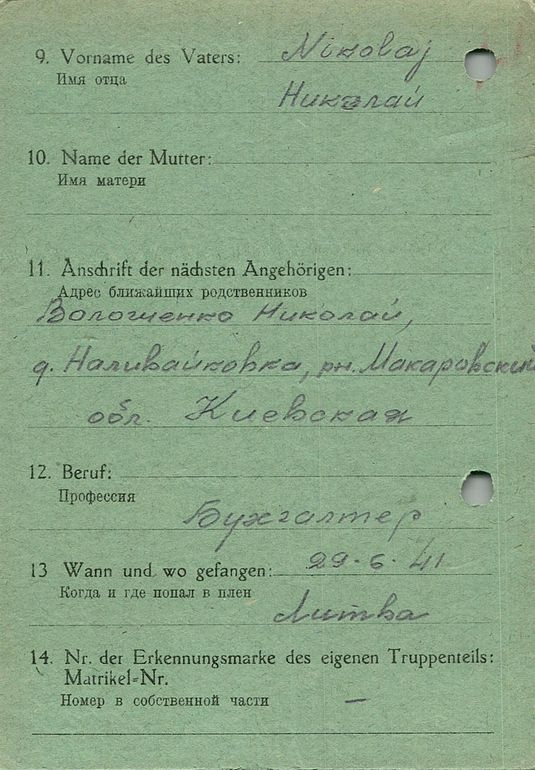 9. Vorname des Vaters: Nikolaj
Имя отца
Николай
10. Name der Mutter:
Имя матери
11. Anschrift der nächsten Angehörigen:
Адрес ближайших родственников
Волошенко Николай,
д. Наливайковка, рн. Макаровский
обл. Киевская
12. Beruf:
Профессия
Бухгалтер
13 Wann und wo gefangen: 29·6·41
Когда и где попал в плен
Литва
14. Nr. der Erkennungsmarke des eigenen Truppenteils:
Matrikel-Nr.
Номер в собственной части —